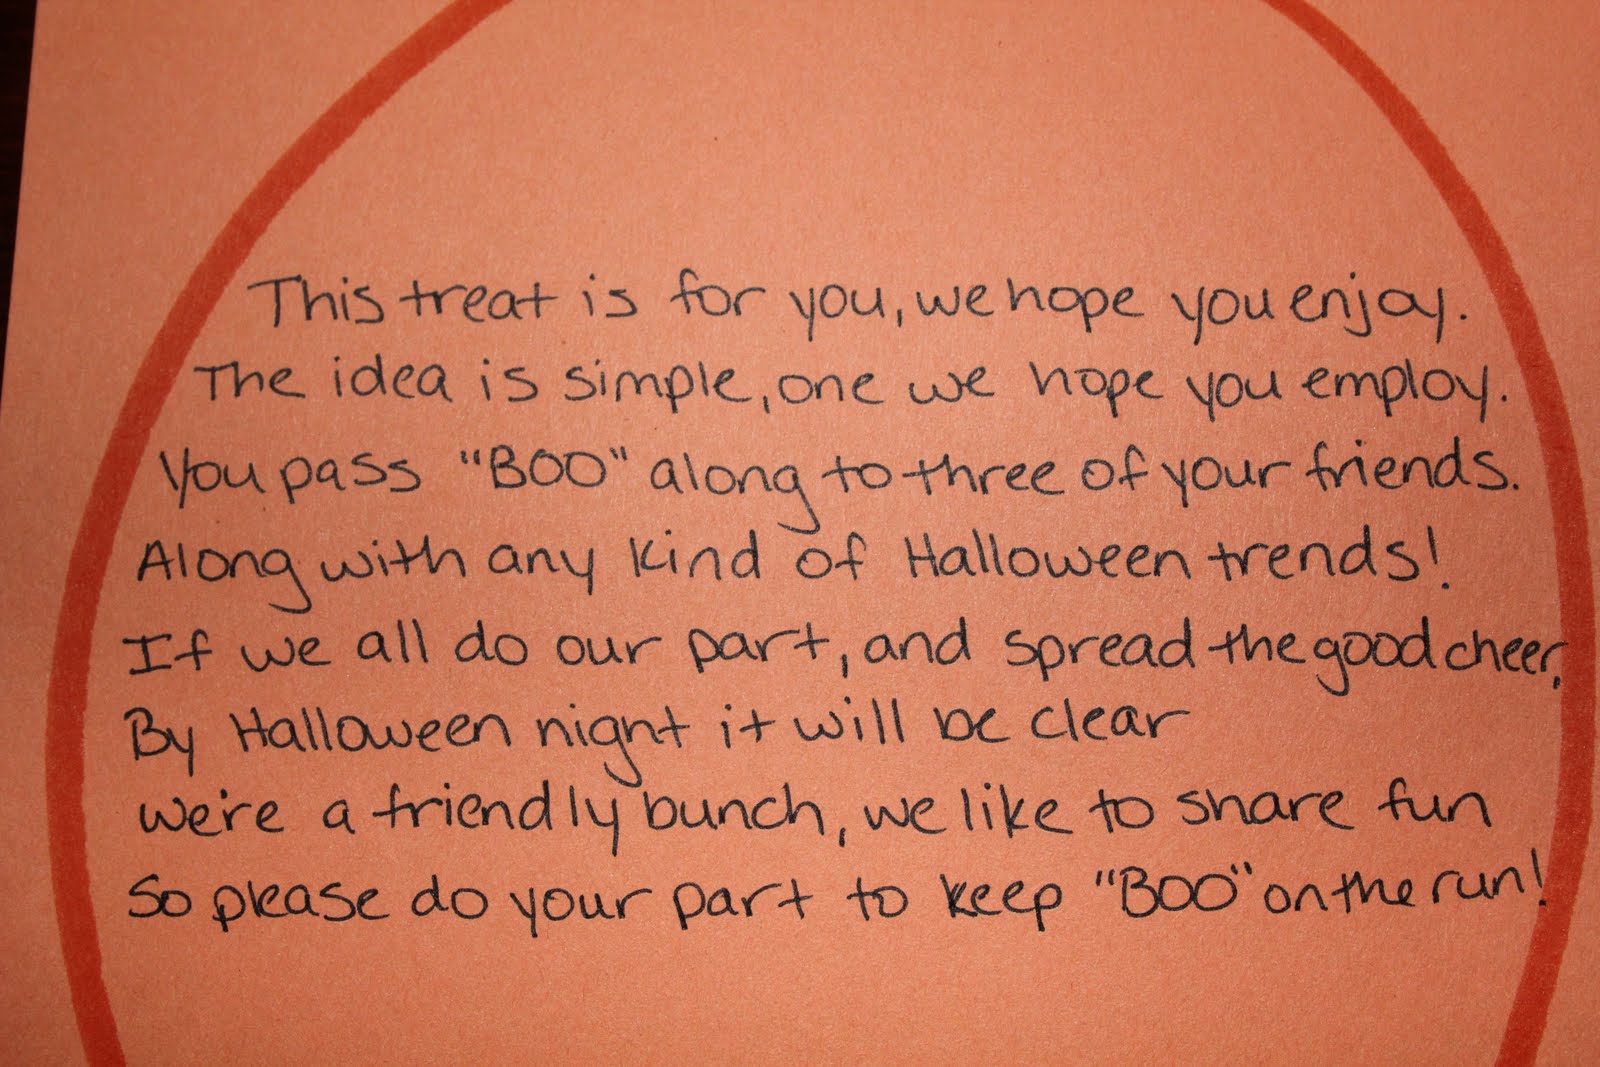 This treat is for you, we hope you enjoy.
The idea is simple, one we hope you employ.
You pass "BOO" along to three of your friends.
Along with any kind of Halloween trends!
If we all do our part, and spread the good cheer,
By Halloween night it will be clear
We're a friendly bunch, we like to share fun
So please do your part to keep "BOO" on the run!